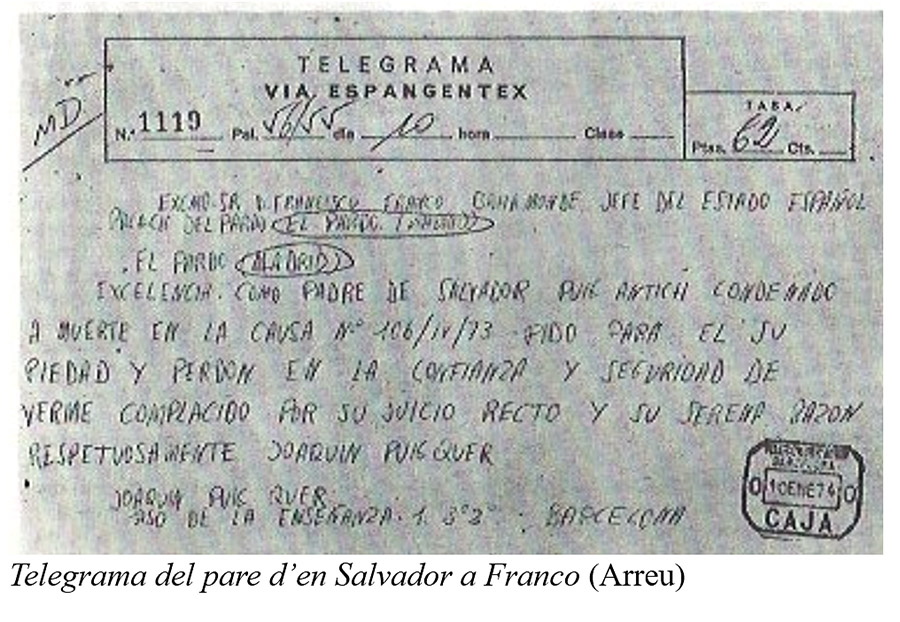 TELEGRAMA
VIA. ESPANGENTEX
MD
N.º 1119 Pal. 56/55 dia 10 hora Clase
TASA:
Ptas. 62 Cts.
EXCMO. SR D. FRANCISCO FRANCO BAHAMONDE JEFE DEL ESTADO ESPAÑOL
PALACIO DEL PARDO EL PARDO. (MADRID)
. EL PARDO (MADRID)
EXCELENCIA. COMO PADRE DE SALVADOR PUIG ANTICH CONDENADO
A MUERTE EN LA CAUSA Nº 106/IV/73 PIDO PARA EL SU
PIEDAD Y PERDON EN LA CONFIANZA Y SEGURIDAD DE
VERME COMPLACIDO POR SU JUICIO RECTO Y SU SERENA RAZON
RESPETUOSAMENTE JOAQUIN PUIG QUER
JOAQUIN PUIG QUER
DE LA ENSEÑANZA. 1. 3º 2ª - BARCELONA
10 ENE 74
CAJA
Telegrama del pare d’en Salvador a Franco (Arreu)